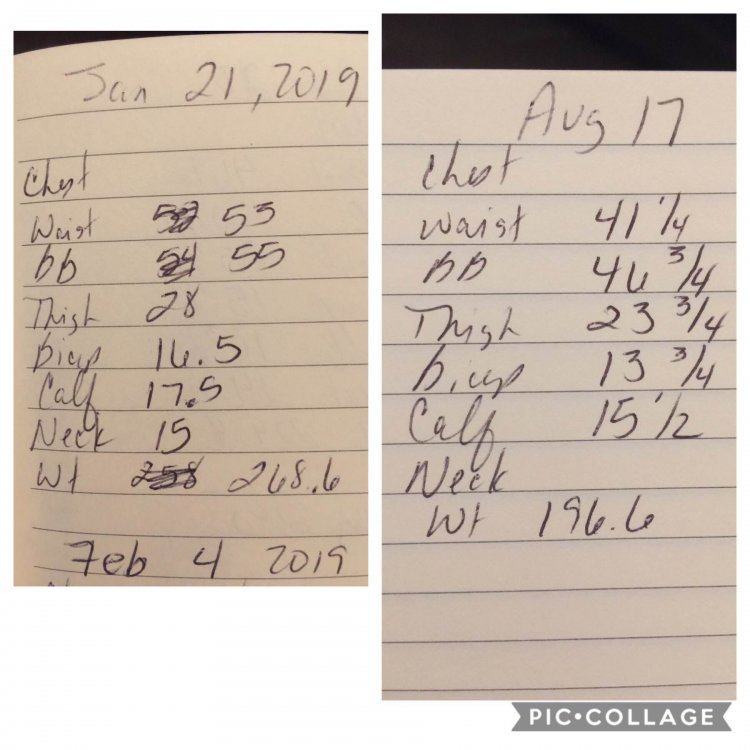 Jan 21, 2019
Chest
Waist 53
BB 55
Thigh 28
Bicep 16.5
Calf 17.5
Neck 15
Wt 268.6
Feb 4 2019
Aug 17
Chest
Waist 41 1/4
BB 46 3/4
Thigh 23 3/4
Bicep 13 3/4
Calf 15 1/2
Neck
Wt 196.6
PIC•COLLAGE